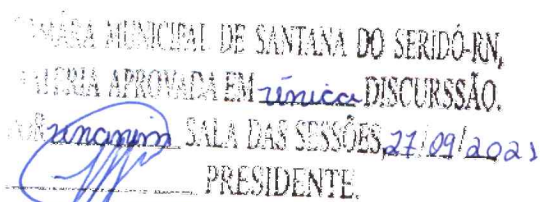 CÂMARA MUNICIPAL DE SANTANA DO SERIDÓ-RN,
MATERIA APROVADA EM única DISCURSSÃO.
POR unanim SALA DAS SESSÕES, 27/09/2021
PRESIDENTE.